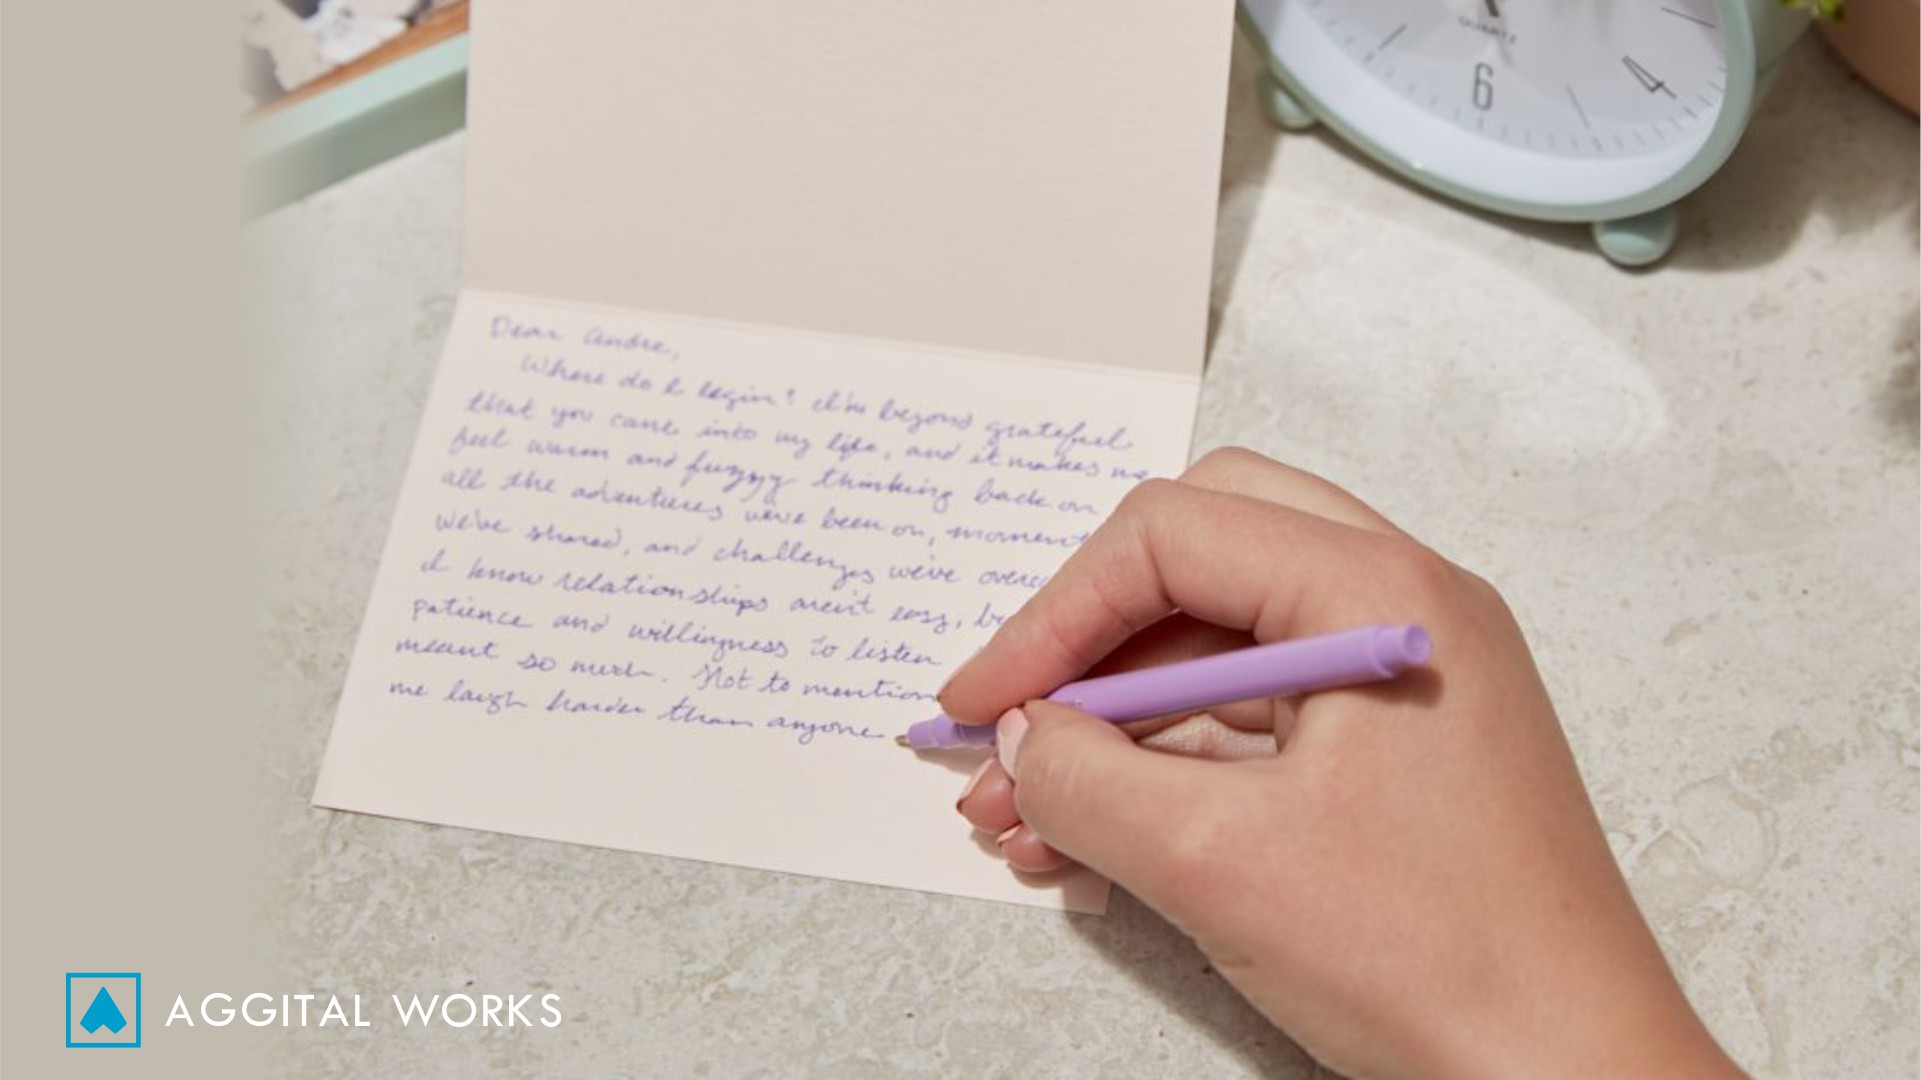 QUARTZ
6
4
Dear Andre,
Where do I begin? I'm beyond grateful
that you came into my life, and it makes me
feel warm and fuzzy thinking back on
all the adventures we've been on, moment
we've shared, and challenges we've overc
I know relationships aren't easy, b
patience and willingness to listen
meant so much. Not to mention
me laugh harder than anyone
AGGITAL WORKS